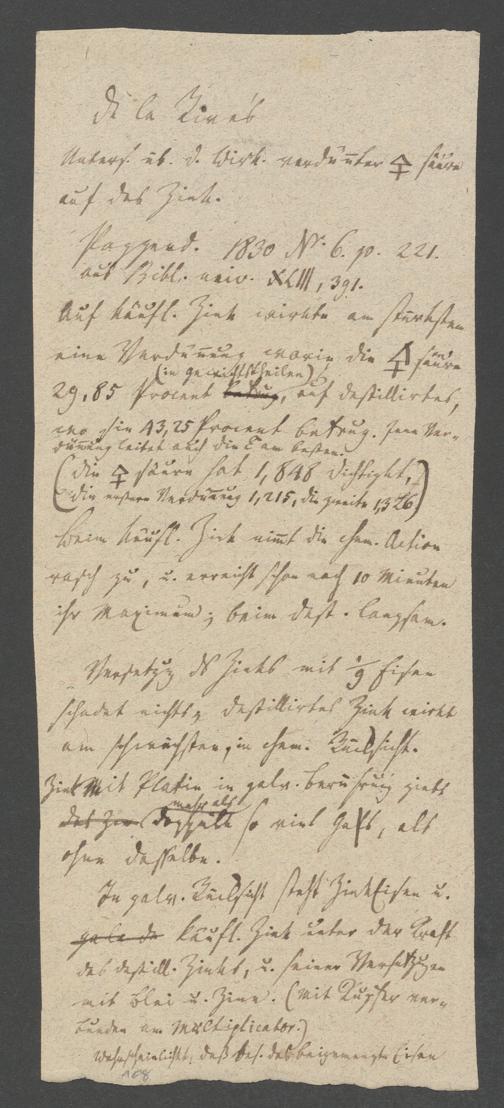 De la Rive's
Unters. üb. d. Wirk. verdünter 🜍 säure
auf das Zink.
Poggend. 1830 Nr. 6. p. 221.
aus Bibl. univ. XLIII, 391.
Auf käufl. Zink wirkte am stärksten
eine Verdünnung worin die 🜍 säure
(in Gewichtstheilen)
29,85 Procent betrug, auf destillirtes,
wo sie 43,25 Procent betrug. Jene Ver-
dünnung leitet auch die E am besten.
(die 🜍 säure hat 1,848 Dichtigkt,
die erstere Verdünnung 1,215, die zweite 1,326)
Beim käufl. Zink nimmt die chem. Action
rasch zu, u. erreicht schon nach 10 Minuten
ihr Maximum; beim dest. langsam.
Versetzg ds Zinks mit 1/9 Eisen
schadet nichts, destillirtes Zink wirkt
am schwächsten, in chem. Rücksicht.
Zink mit Platin in galv. Berührung giebt
mehr als
das Zin doppelt so viel Gas, als
ohne dasselbe.
In galv. Rücksicht steht Zink Eisen u.
käufl. Zink unter der Kraft
des destill. Zinks, u. seiner Versetzgen
mit Blei u. Zinn. (mit Kupfer ver-
bunden am Multiplicator.)
Wahrscheinlichkt, daß bes. das beigemengte Eisen
108